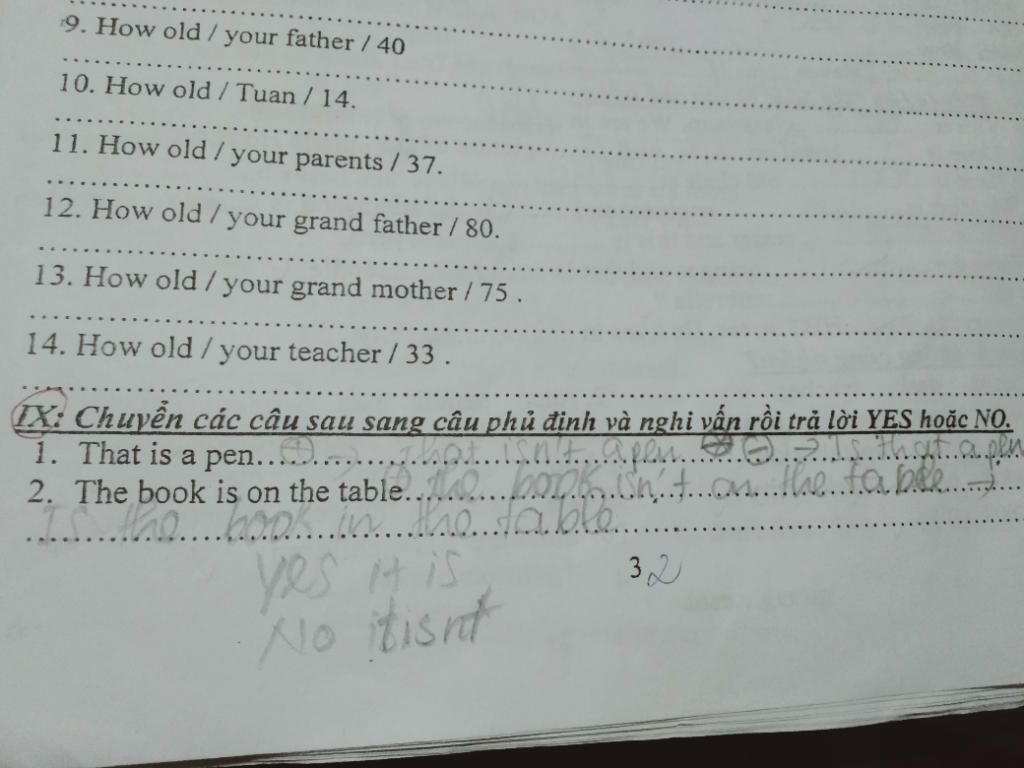 9. How old / your father / 40
10. How old / Tuan / 14.
11. How old / your parents / 37.
12. How old / your grand father / 80.
13. How old / your grand mother / 75 .
14. How old / your teacher / 33 .
IX: Chuyển các câu sau sang câu phủ định và nghi vấn rồi trả lời YES hoặc NO.
1. That is a pen... + → that isn't a pen - → Is that a pen
2. The book is on the table... the book isn't on the table →
Is the book in the table
3 2
Yes it is
No it isnt